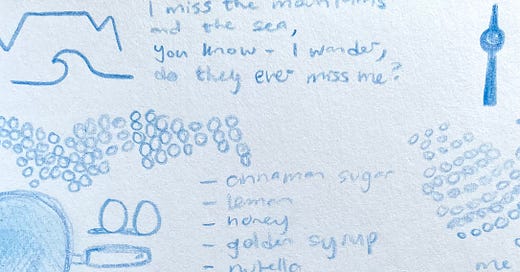 I miss the mountains
and the sea,
you know - I wonder,
do they ever miss me?
- cinnamon sugar
- lemon
- honey
- golden syrup
- nutella
me